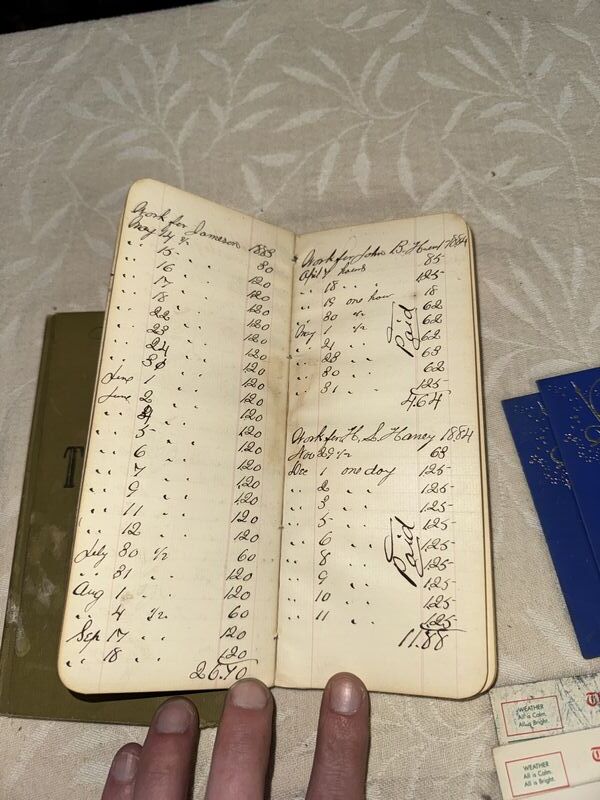 Work for Jameson 1883
May 14 1/2
" 15 " " 80
" 16 " " 120
" 17 " " 120
" 18 " " 120
" 22 " " 120
" 23 " " 120
" 24 " " 120
" 30 " " 120
June 1 " " 120
June 2 " " 120
" 4 " " 120
" 5 " " 120
" 6 " " 120
" 7 " " 120
" 9 " " 120
" 11 " " 120
" 12 " " 120
July 30 1/2 60
" 31 " " 120
Aug 1 " " 120
" 4 1/2 60
Sep 17 " " 120
" 18 " " 120
26.70
Work for John B. 1884
April hours 85
" 18 " " 125
" 19 one hour 18
" 30 1/2 62
May 1 1/2 62
" 21 " " 62
" 28 " " 63
" 30 " " 62
" 31 " " 125
Paid
4.64
Work for H. S. Haney 1884
Nov 29 1/2 63
Dec 1 one day 125
" 2 " " 125
" 3 " " 125
" 5 " " 125
" 6 " " 125
" 8 " " 125
" 9 " " 125
" 10 " " 125
" 11 " " 125
Paid
11.88
T
WEATHER
All is Calm.
All is Bright.
WEATHER
All is Calm.
All is Bright.